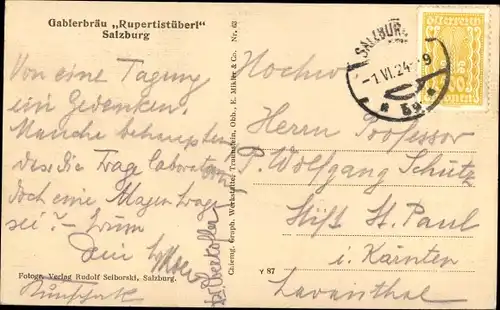 Gablerbräu „Rupertistüberl"
Salzburg
Von eine Tagung
ein Gedenken.
Manche behaupten
dass die Frage
doch eine Magenfrage
sei? –
Dein
Fotogr. Verlag Rudolf Selborski, Salzburg.
Chiemg. Graph. Werkstätte, Traunstein, Obb., E. Mikler & Co. Nr. 62
SALZBURG
–1.VI.24–9
* 5g *
Österreich
Kronen
Hochw
Herrn Professor
P. Wolfgang Schütz
Stift St. Paul
i. Kärnten
Lavanthal
V 87